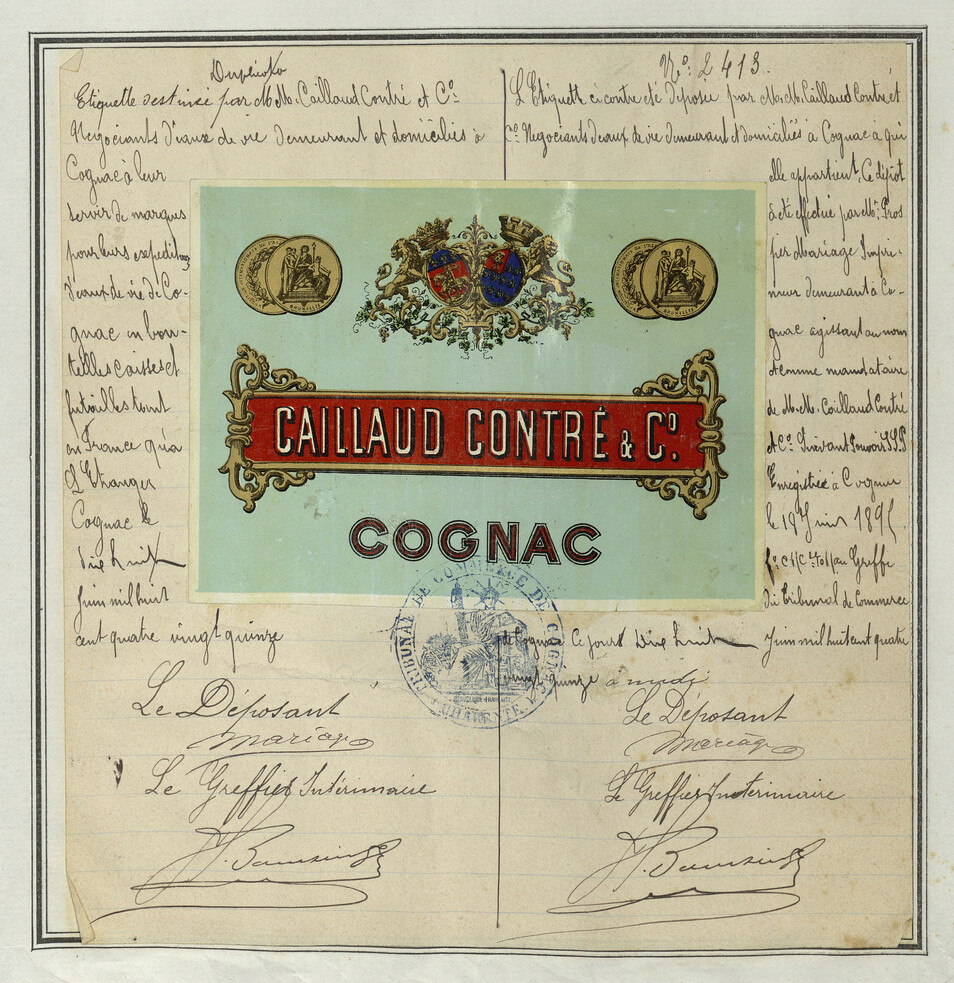 Duplicata
Etiquette destinée par M.M. Caillaud Contré et Cº
Négociants d'eaux de vie demeurant et domiciliés à
Cognac à leur
servir de marques
pour leurs expeditions
d'eaux de vie de Co-
gnac en bou-
teilles caisses et
futailles tant
en France qu'à
L'Etranger
Cognac le
dix huit
Juin mil huit
cent quatre vingt quinze
Le Déposant
Mariage
Le Greffier Intérimaire
Nº: 2413.
L'Etiquette ci contre été déposée par M.M. Caillaud Contré et
Cº Négociants d'eaux de vie demeurant et domiciliés à Cognac à qui
elle appartient, Ce dépôt
à été effectué par Mr. Pros
per Mariage Impri-
meur demeurant à Co-
gnac agissant au nom
et comme mandataire
de M.M. Caillaud Contré
et Cº. Suivant Pouvoir S.S.P
Enregistré à Cognac
le 18 Juin 1895
au Greffe
du Tribunal de Commerce
de Cognac Ce jourd dix huit Juin mil huit cent quatre
vingt quinze à midi
Le Déposant
Mariage
Le Greffier Intérimaire
CAILLAUD CONTRÉ & Cº.
COGNAC
TRIBUNAL DE COMMERCE DE COGNAC
CHARENTE